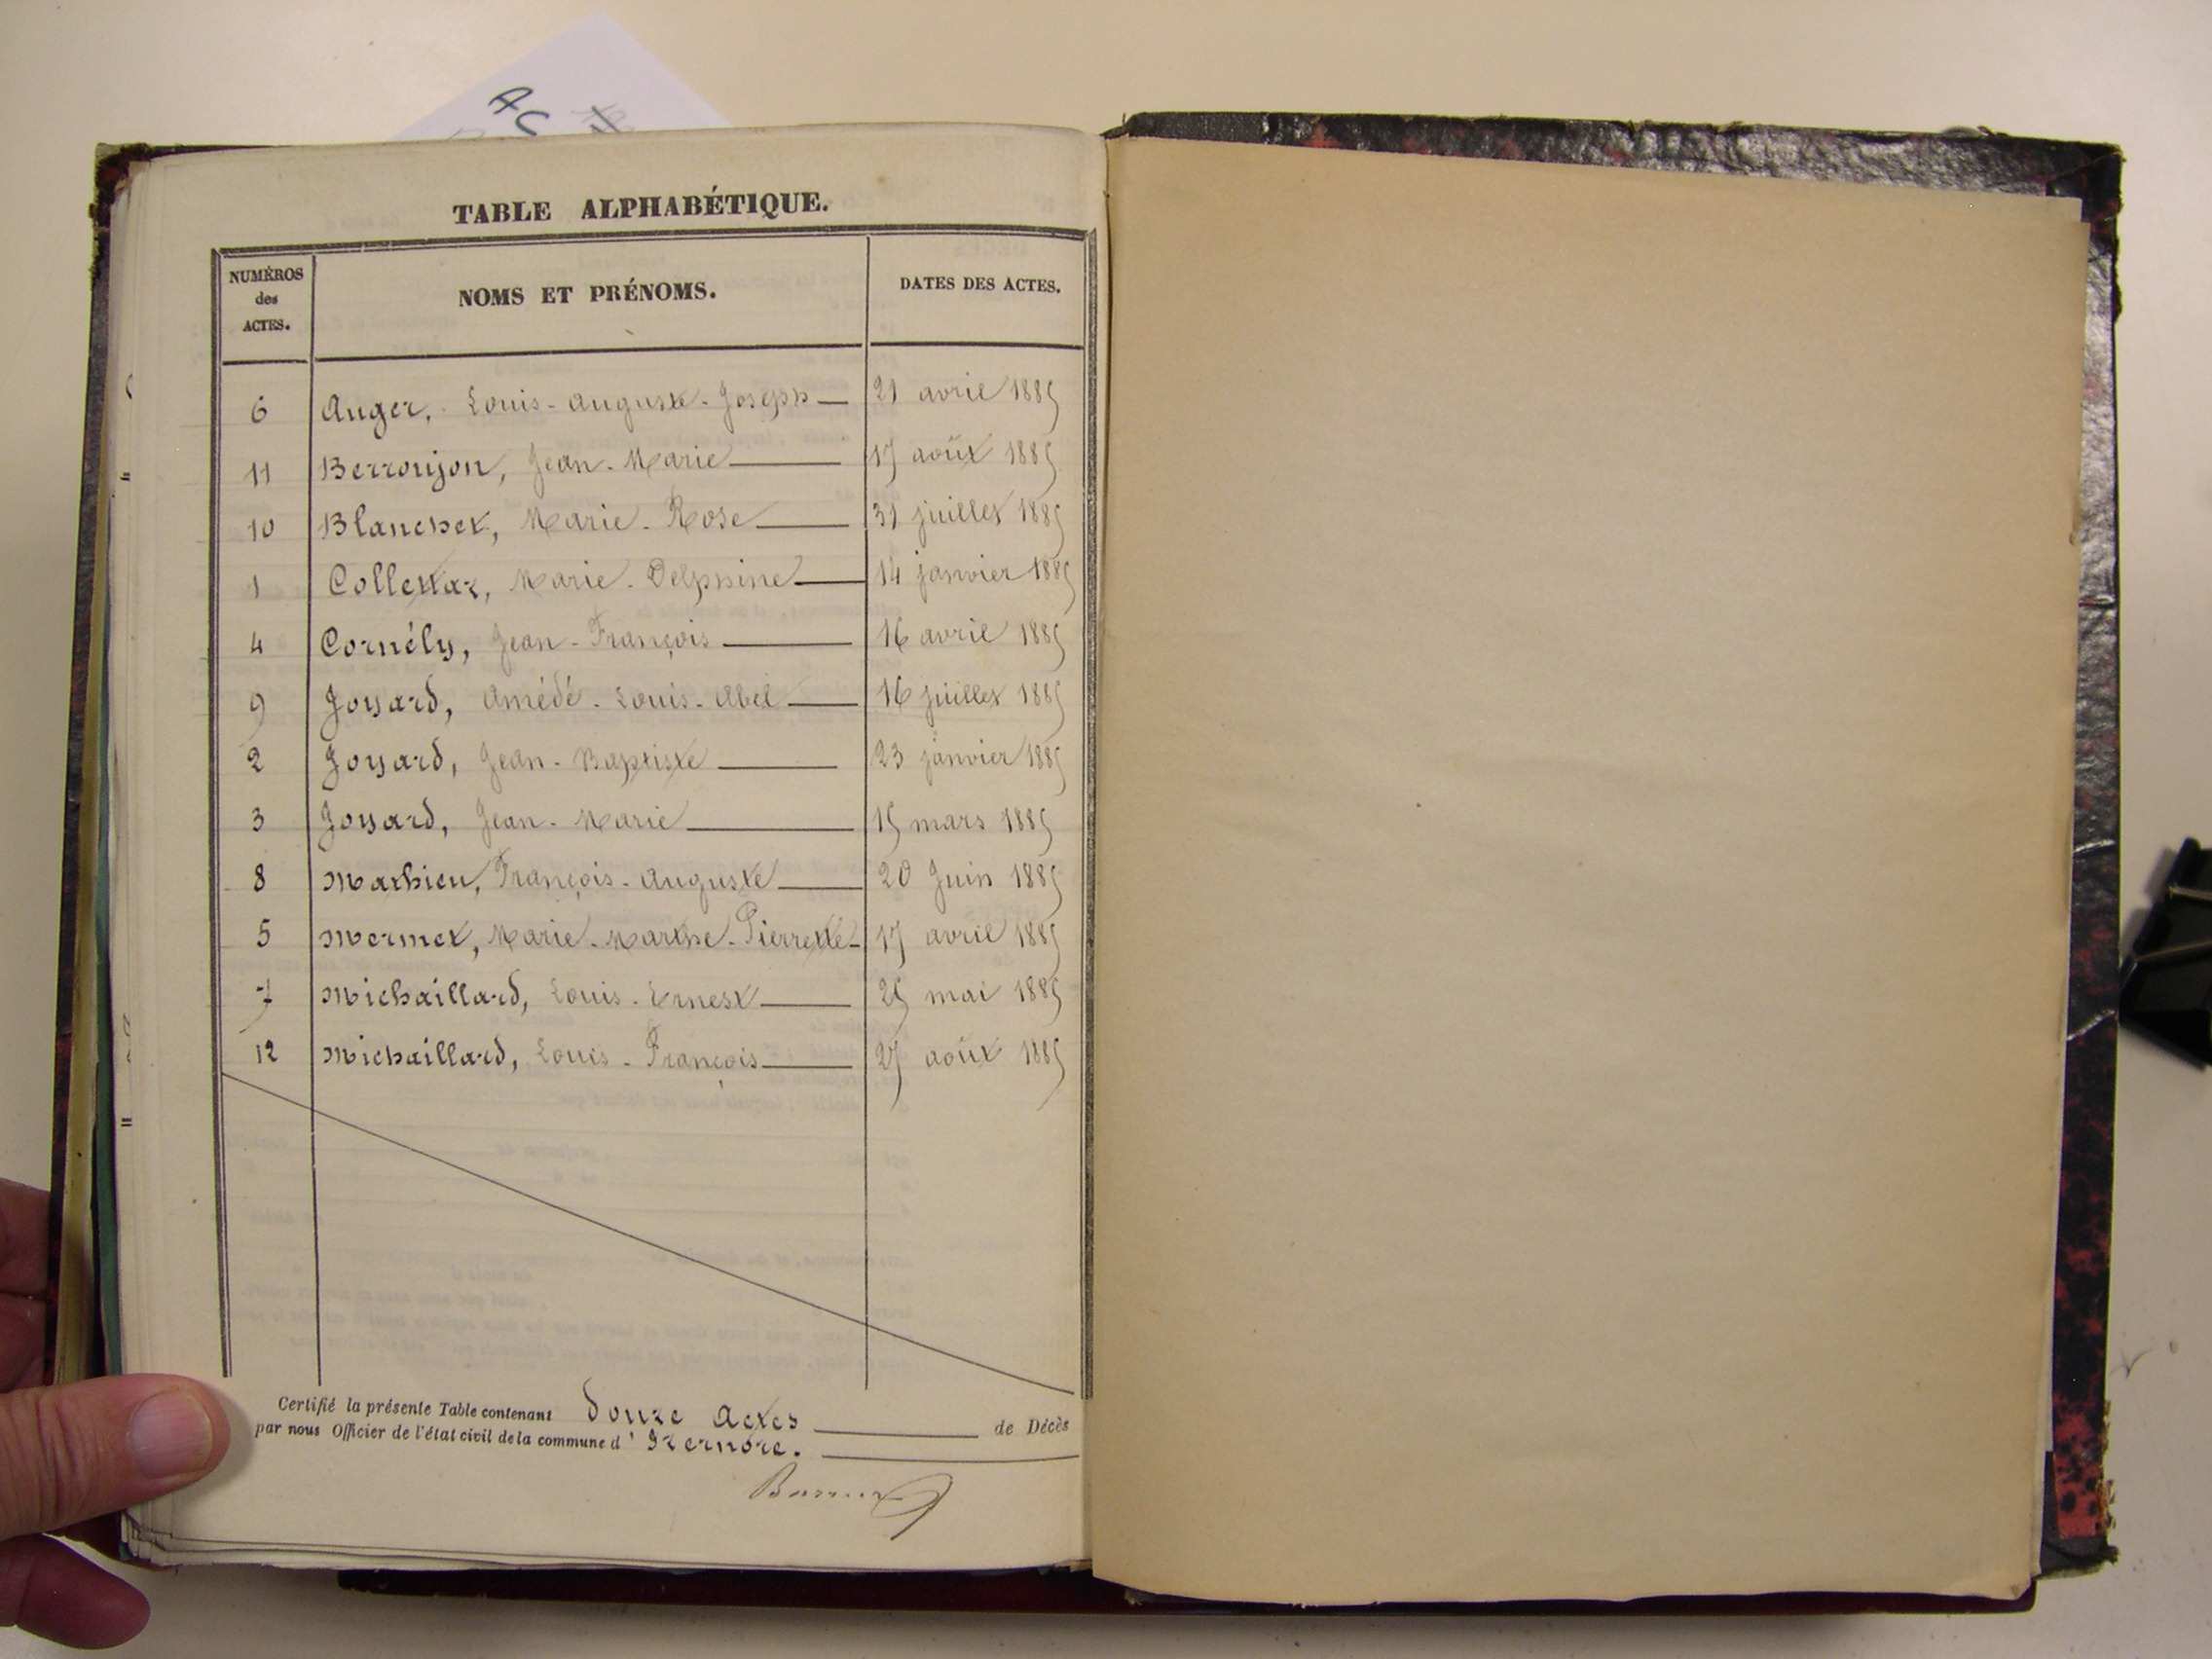 AC
TABLE ALPHABÉTIQUE.
NUMÉROS des ACTES. NOMS ET PRÉNOMS. DATES DES ACTES.
6 Auger, Louis-Auguste-Joseph 21 avril 1885
11 Berroujon, Jean-Marie 17 août 1885
10 Blanchet, Marie-Rose 31 juillet 1885
1 Collettaz, Marie-Delphine 14 janvier 1885
4 Cornély, Jean-François 16 avril 1885
9 Joyard, Amédé-Louis-Abel 16 juillet 1885
2 Joyard, Jean-Baptiste 23 janvier 1885
3 Joyard, Jean-Marie 15 mars 1885
8 Mathieu, François-Auguste 20 Juin 1885
5 Mermet, Marie-Marthe-Pierrette 17 avril 1885
7 Michaillard, Louis-Ernest 25 mai 1885
12 Michaillard, Louis-François 27 août 1885
Certifié la présente Table contenant douze actes de Décès
par nous Officier de l'état civil de la commune d'Izernore.